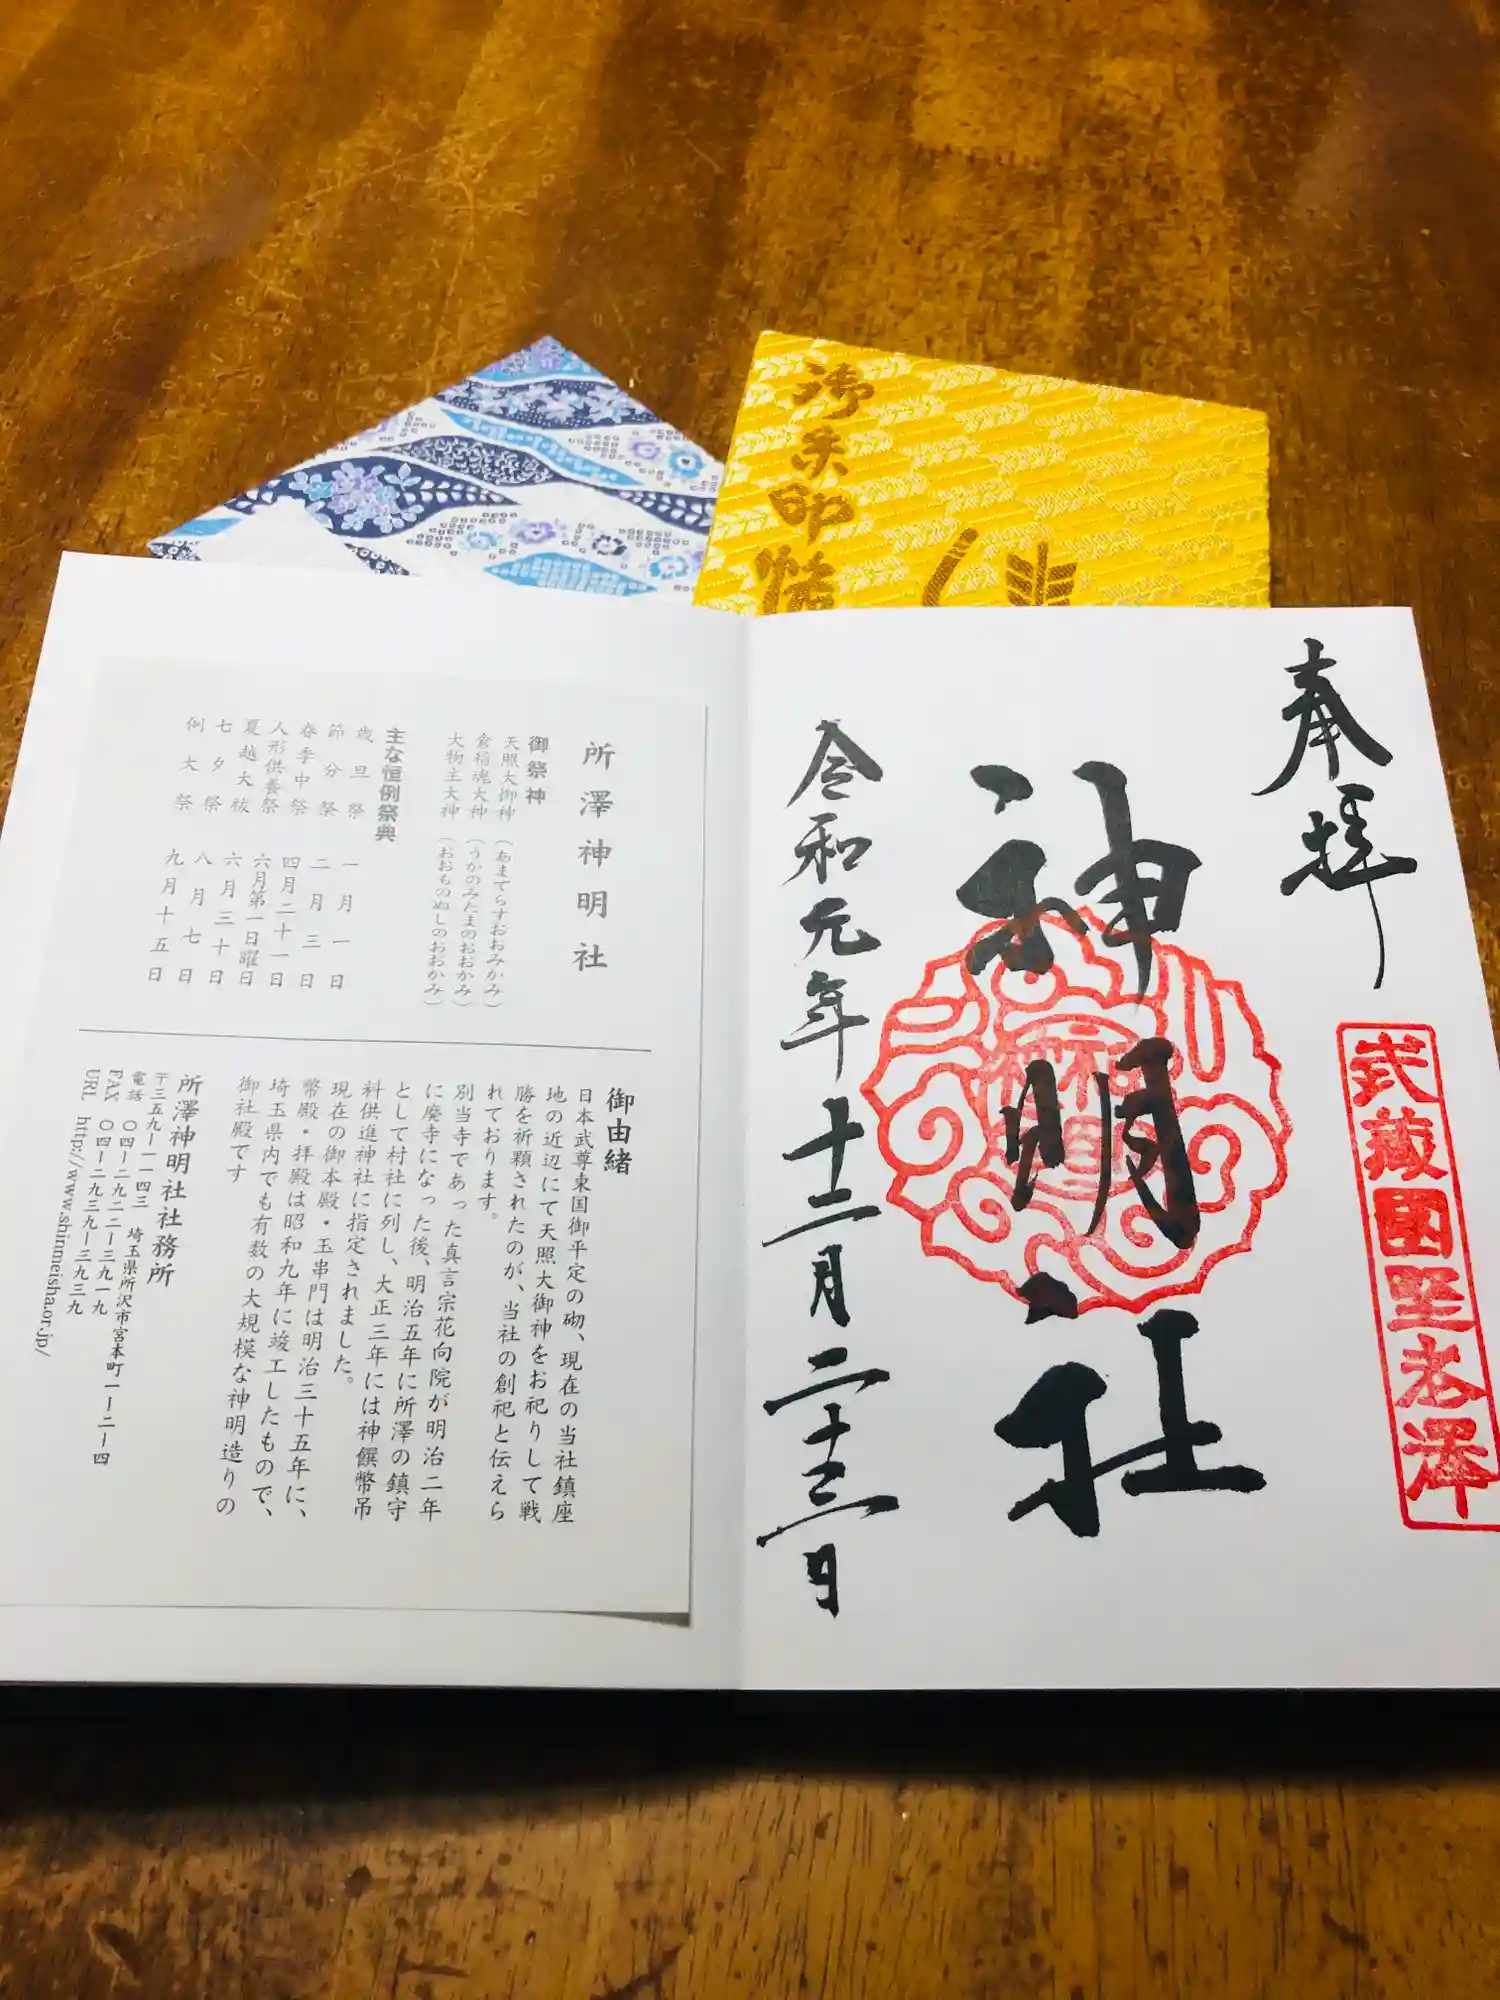 御朱印帳
奉拝
武蔵國野老澤
神明社
令和元年十二月二十三日
所澤神明社
御祭神
天照大御神（あまてらすおおみかみ）
倉稲魂大神（うかのみたまのおおかみ）
大物主大神（おおものぬしのおおかみ）
主な恒例祭典
歳旦祭 一月一日
節分祭 二月三日
春季中祭 四月二十一日
人形供養祭 六月第一日曜日
夏越大祓 六月三十日
七夕祭 八月七日
例大祭 九月十五日
御由緒
日本武尊東国御平定の砌、現在の当社鎮座
地の近辺にて天照大御神をお祀りして戦
勝を祈願されたのが、当社の創祀と伝えら
れております。
別当寺であった真言宗花向院が明治二年
に廃寺になった後、明治五年に所澤の鎮守
として村社に列し、大正三年には神饌幣帛
料供進神社に指定されました。
現在の御本殿・玉串門は明治三十五年に、
幣殿・拝殿は昭和九年に竣工したもので、
埼玉県内でも有数の大規模な神明造りの
御社殿です
所澤神明社社務所
〒三五九ー一一四三 埼玉県所沢市宮本町一ー二ー四
電話 〇四ー二九二二ー三九一九
FAX 〇四ー二九三九ー三九三九
URL http://www.shinmeisha.or.jp/